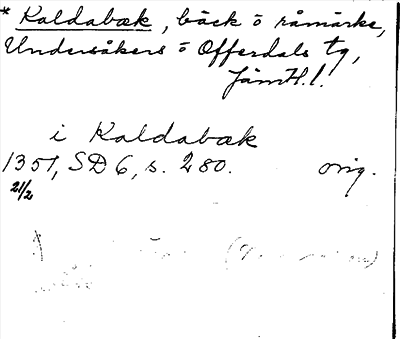 * Kaldabæk, bäck ö råmärke,
Undersåkers ö Offerdals tg,
Jämtl. l.
i Kaldabæk
1351, SD 6, s. 280. orig.
21/2